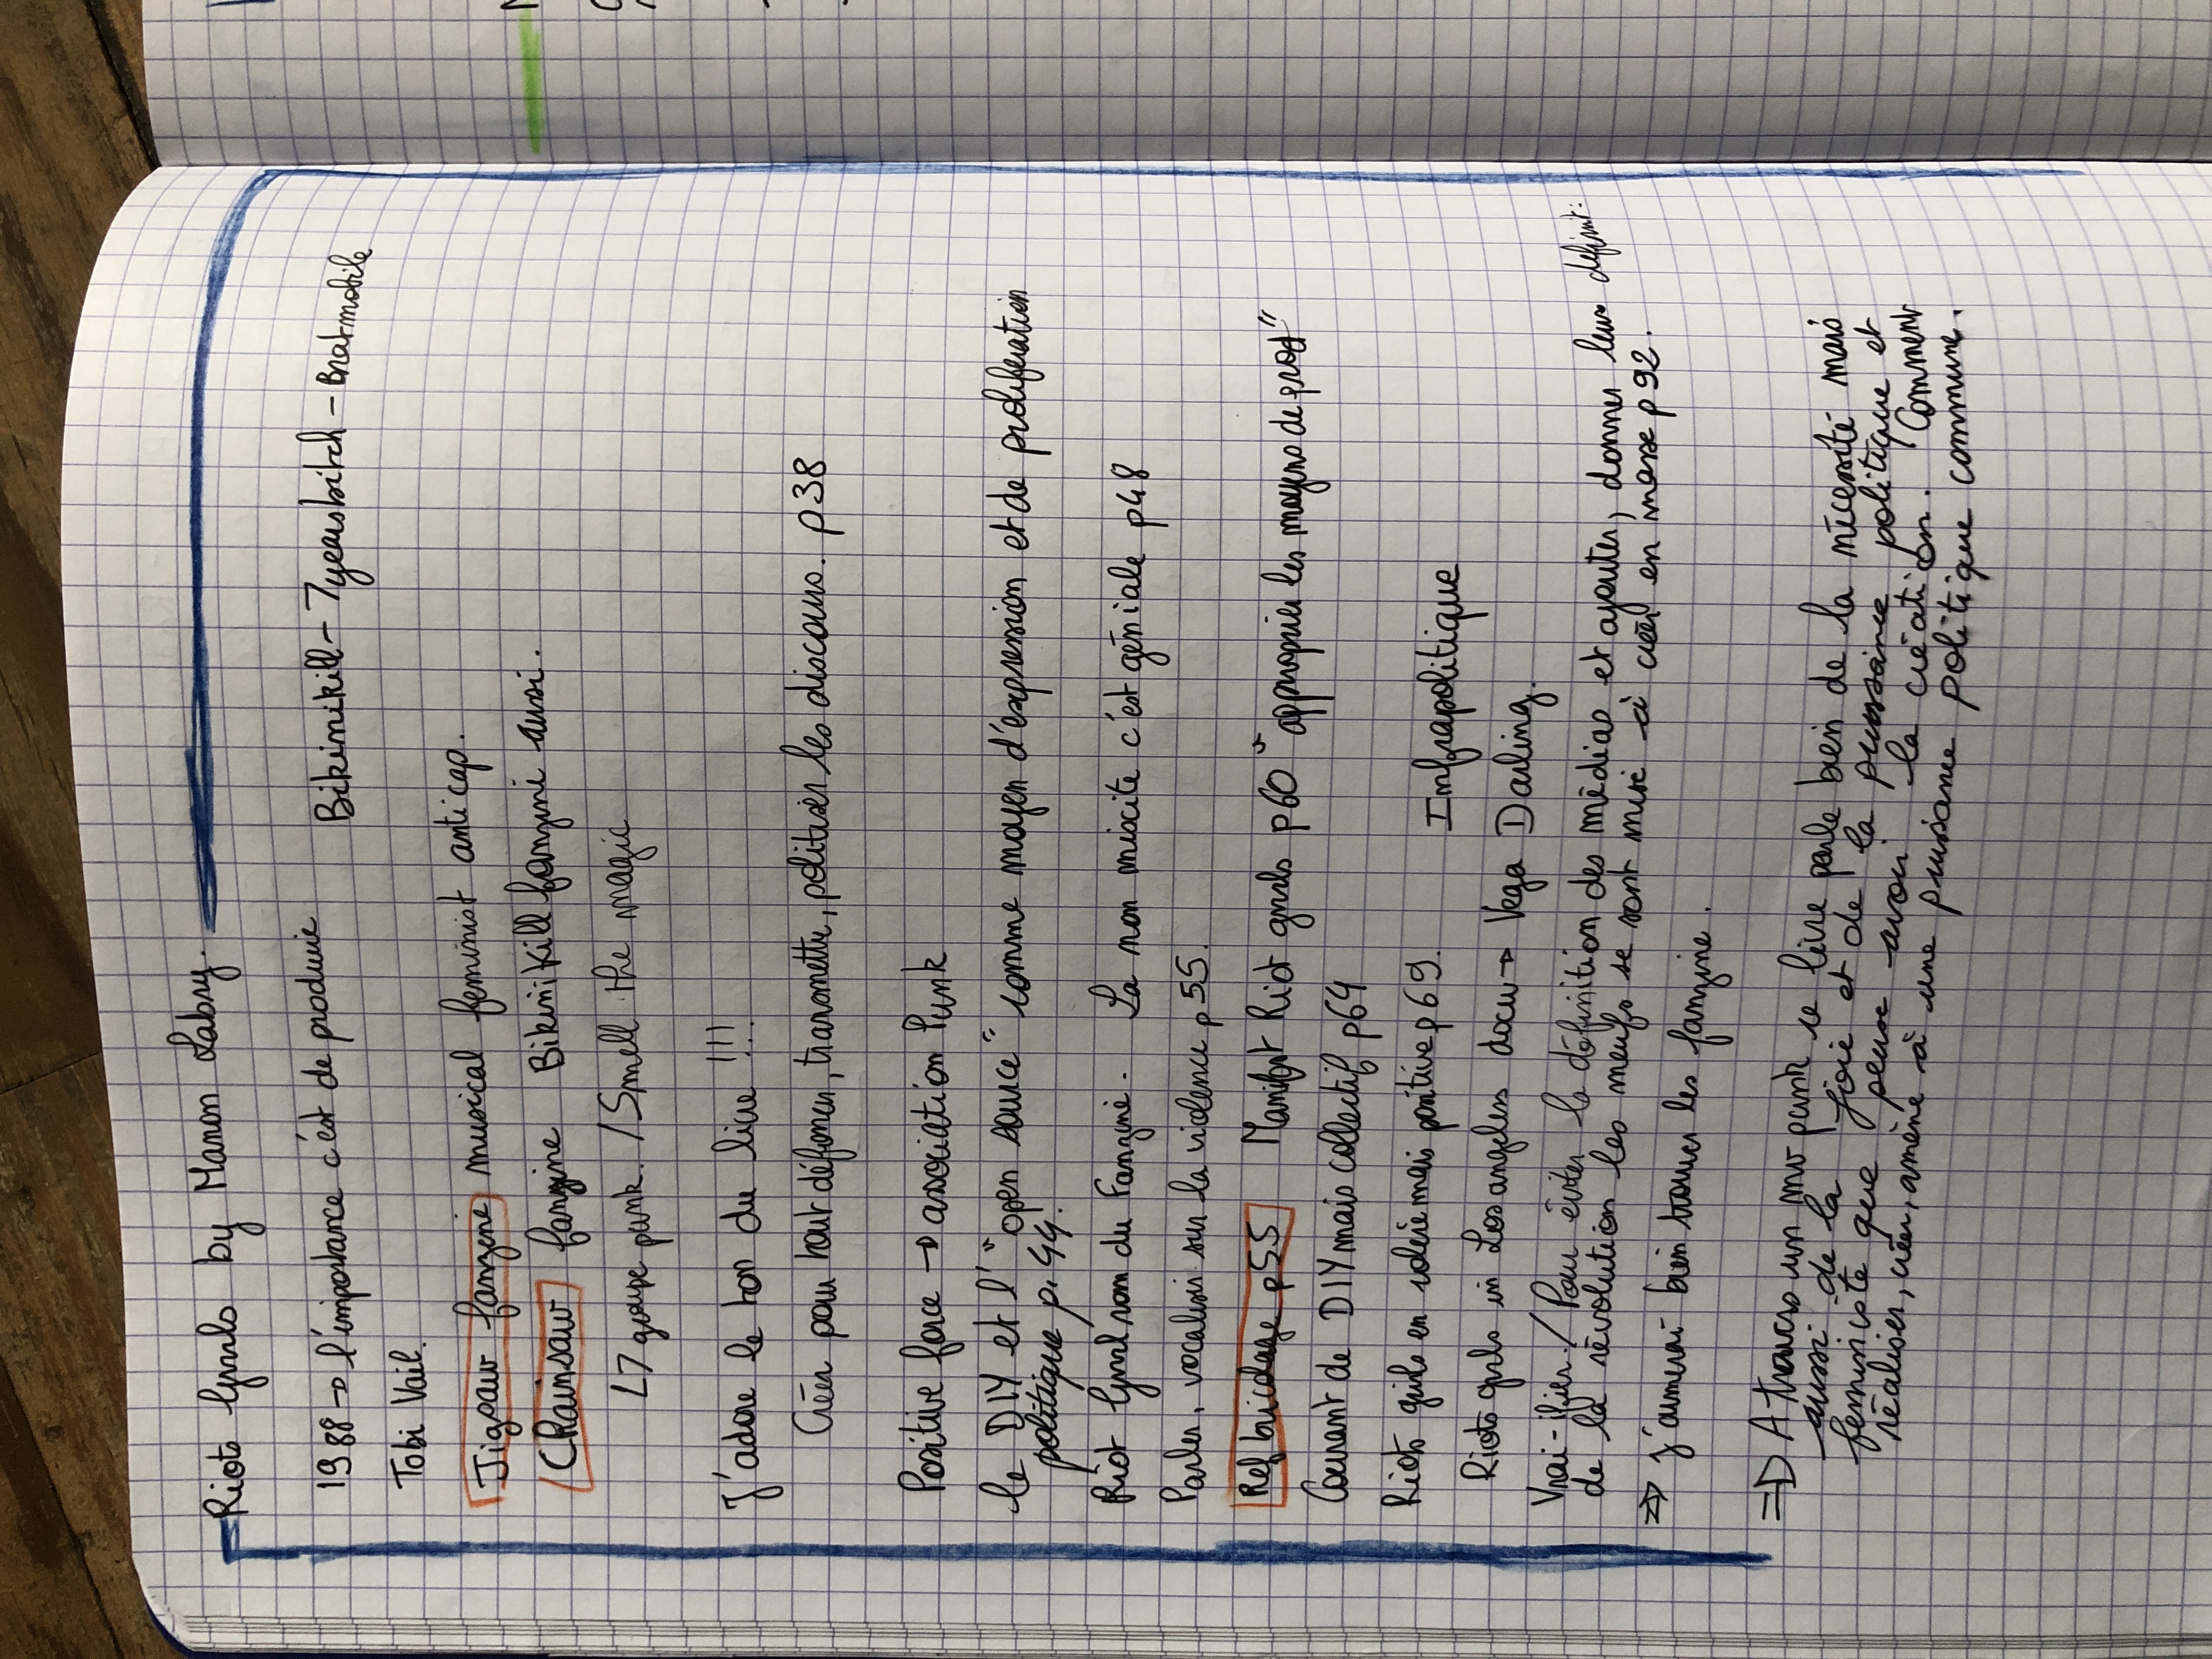 Riots Grrrls by Manon Labry.
1988 → l'importance c'est de produire
Bikinikill - 7yearsbitch - Bratmobile
Tobi Vail.
Jigsaw fanzine musical feminist anti cap.
Chainsaw fanzine Bikini Kill fanzine aussi.
L7 groupe punk. / Smell the magic
J'adore le ton du livre !!!
Créer pour tout défoncer, transmettre, politiser les discours. p38
Positive force → association Punk
le DIY et l' "open source" comme moyen d'expression et de prolifération
politique p. 44.
Riot Grrrl nom du Fanzine. La non mixcite c'est géniale p48
Parler, vocaliser sur la violence p55.
Ref bricolage p55 Manifest Riot grrrls p60 "approprier les moyens de prod"
Courant de DIY mais collectif p64
Riots grrrls en colère mais positive p69.
Infrapolitique
Riots grrls in Los angeless docu → Vega Darling.
Vrai-ifier. / Pour éviter la définition des médias et ajouter, donner leur definit:
de la révolution les meufs se sont mise à créer en masse p92.
⇒ J'aimerai bien trouver les fanzine.
⇒ A travers un mv punk ce livre parle bien de la nécessité mais
aussi de la joie et de la puissance politique et
feministe que peuse avoir la création. Comment
réaliser, créer, amène à une puissance politique commune.